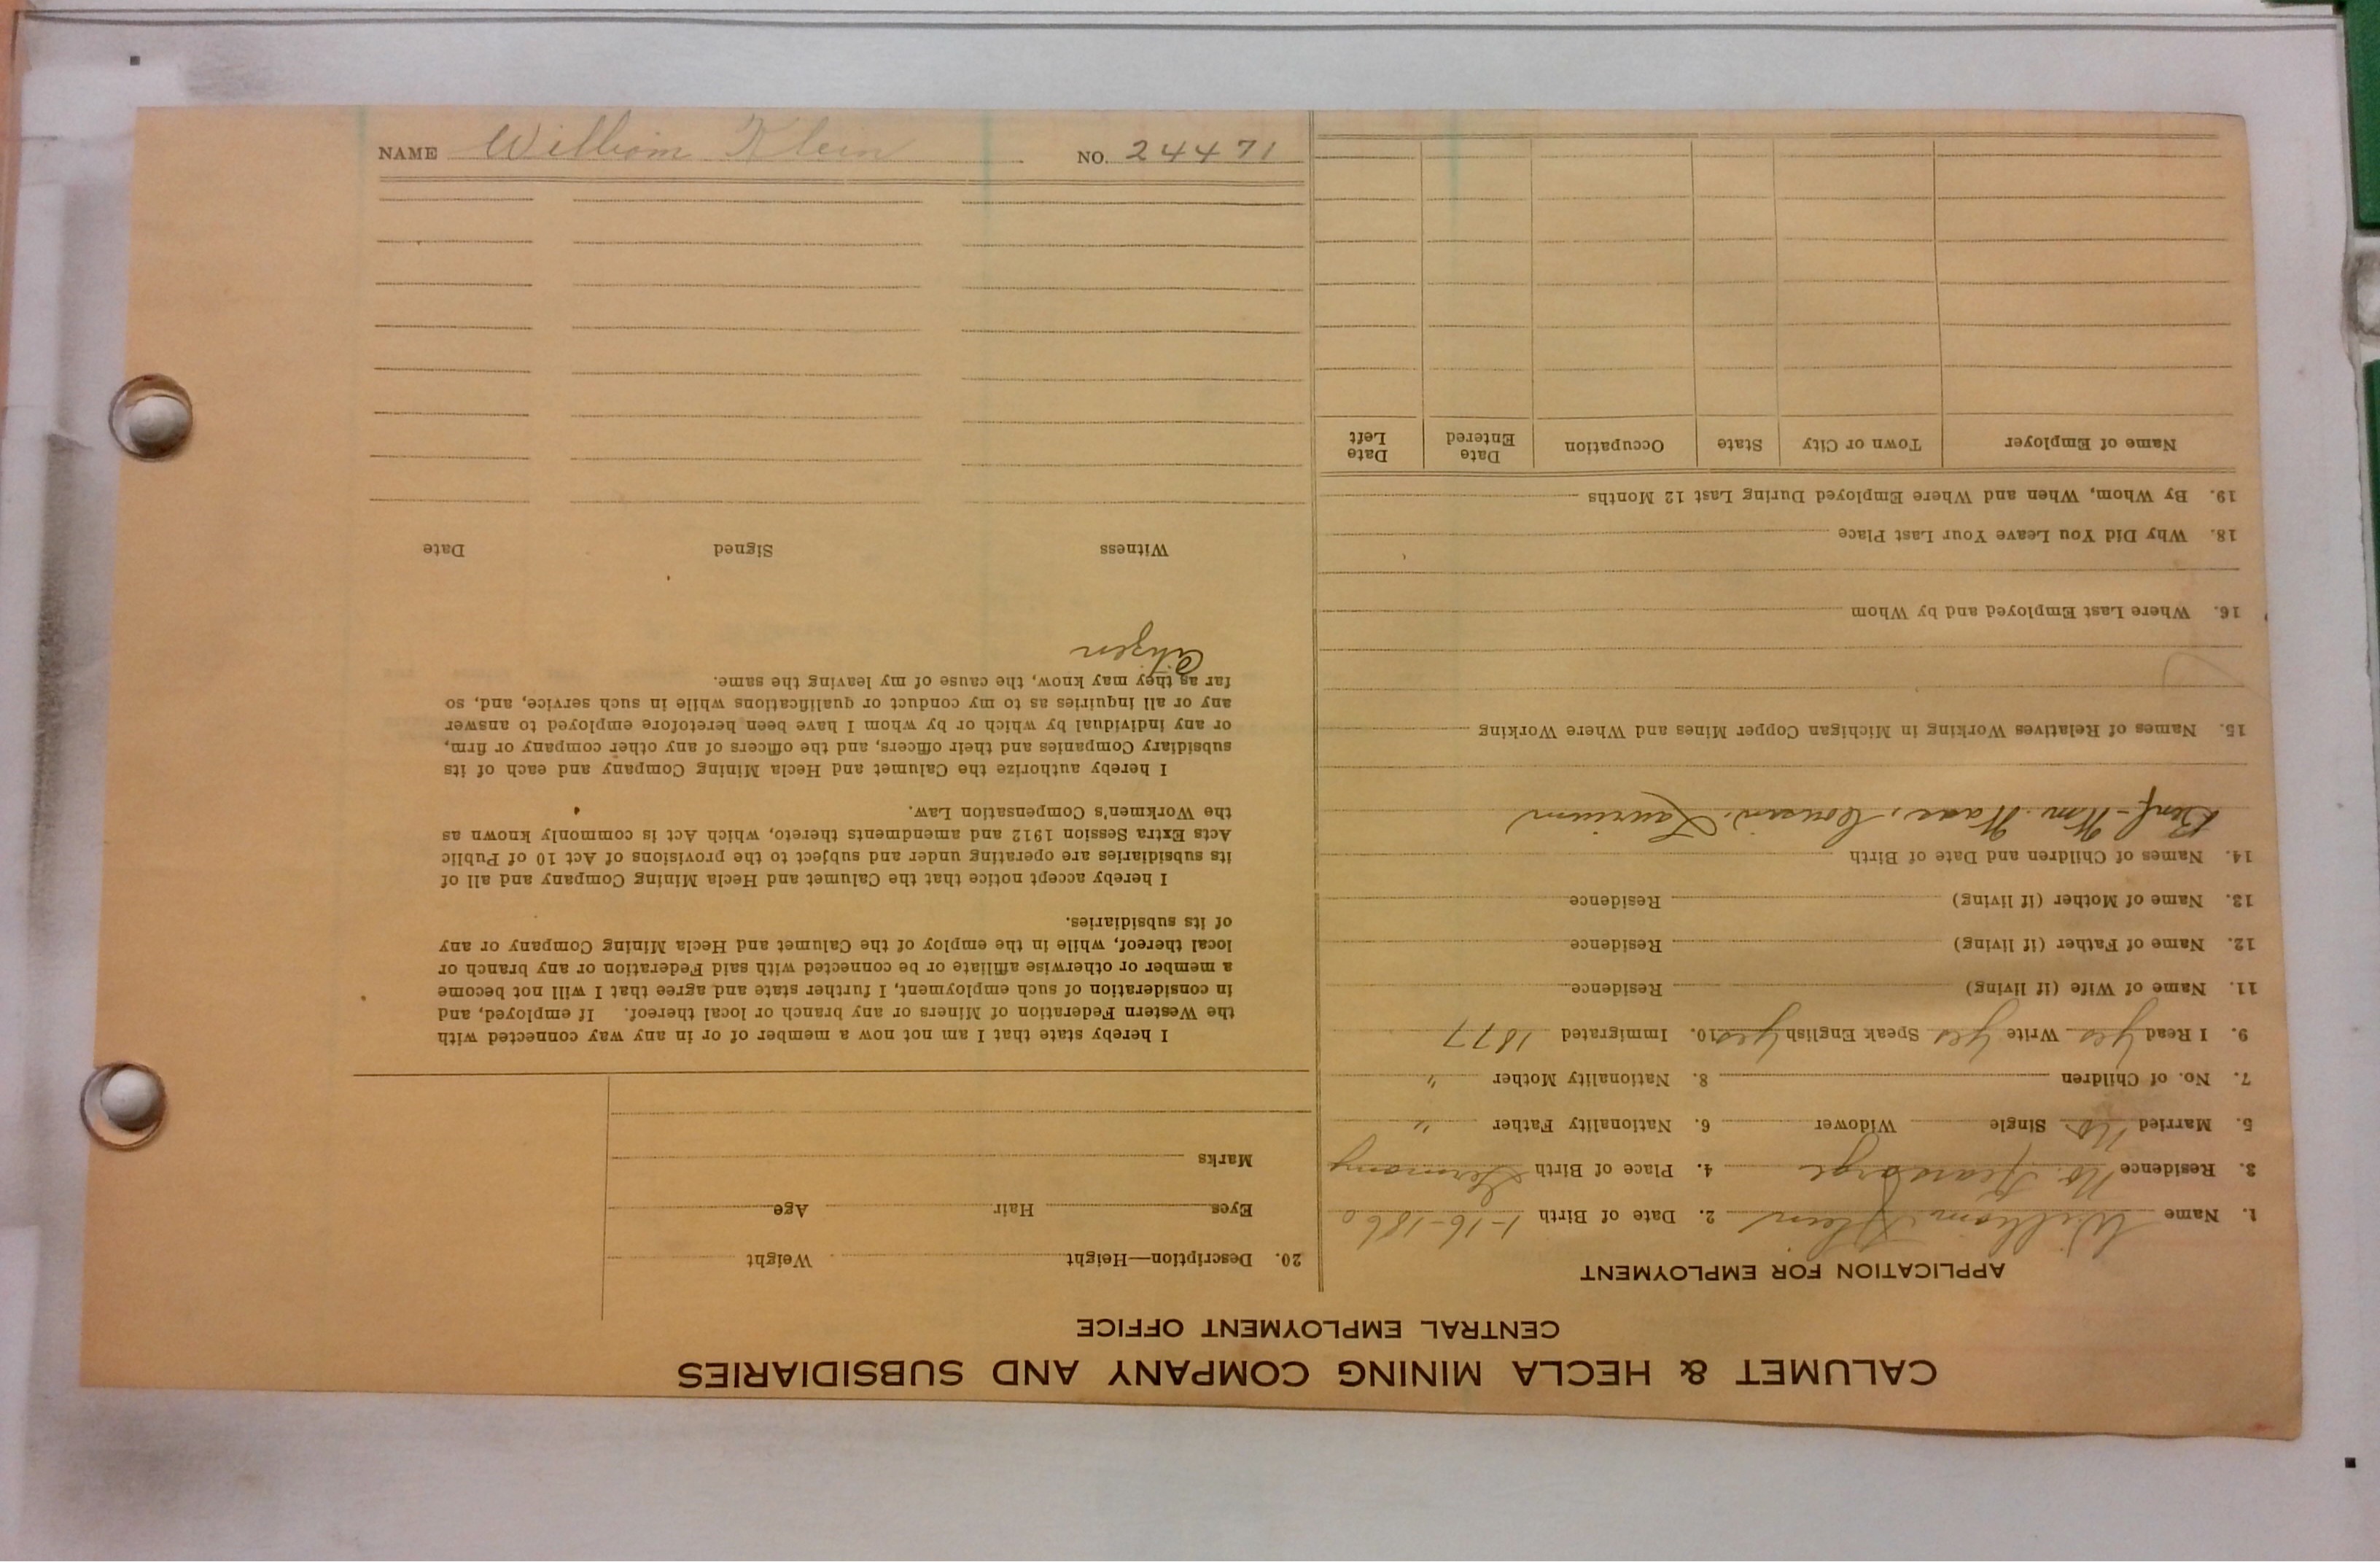 CALUMET & HECLA MINING COMPANY AND SUBSIDIARIES
CENTRAL EMPLOYMENT OFFICE
APPLICATION FOR EMPLOYMENT
1. Name William Klein 2. Date of Birth 1-16-1860
3. Residence No. Kearsarge 4. Place of Birth Germany
5. Married No Single Widower 6. Nationality Father "
7. No. of Children 8. Nationality Mother "
9. I Read Yes Write Yes Speak English Yes 10. Immigrated 1877
11. Name of Wife (if living) Residence
12. Name of Father (if living) Residence
13. Name of Mother (if living) Residence
14. Names of Children and Date of Birth
Benf- Wm. Haas, Cousin, Laurium
15. Names of Relatives Working in Michigan Copper Mines and Where Working
16. Where Last Employed and by Whom
18. Why Did You Leave Your Last Place
19. By Whom, When and Where Employed During Last 12 Months
Name of Employer Town or City State Occupation Date Entered Date Left
20. Description—Height Weight
Eyes Hair Age
Marks
I hereby state that I am not now a member of or in any way connected with
the Western Federation of Miners or any branch or local thereof. If employed, and
in consideration of such employment, I further state and agree that I will not become
a member or otherwise affiliate or be connected with said Federation or any branch or
local thereof, while in the employ of the Calumet and Hecla Mining Company or any
of its subsidiaries.
I hereby accept notice that the Calumet and Hecla Mining Company and all of
its subsidiaries are operating under and subject to the provisions of Act 10 of Public
Acts Extra Session 1912 and amendments thereto, which Act is commonly known as
the Workmen's Compensation Law.
I hereby authorize the Calumet and Hecla Mining Company and each of its
subsidiary Companies and their officers, and the officers of any other company or firm,
or any individual by which or by whom I have been heretofore employed to answer
any or all inquiries as to my conduct or qualifications while in such service, and, so
far as they may know, the cause of my leaving the same.
Citizen
Witness Signed Date
NAME William Klein NO. 24471